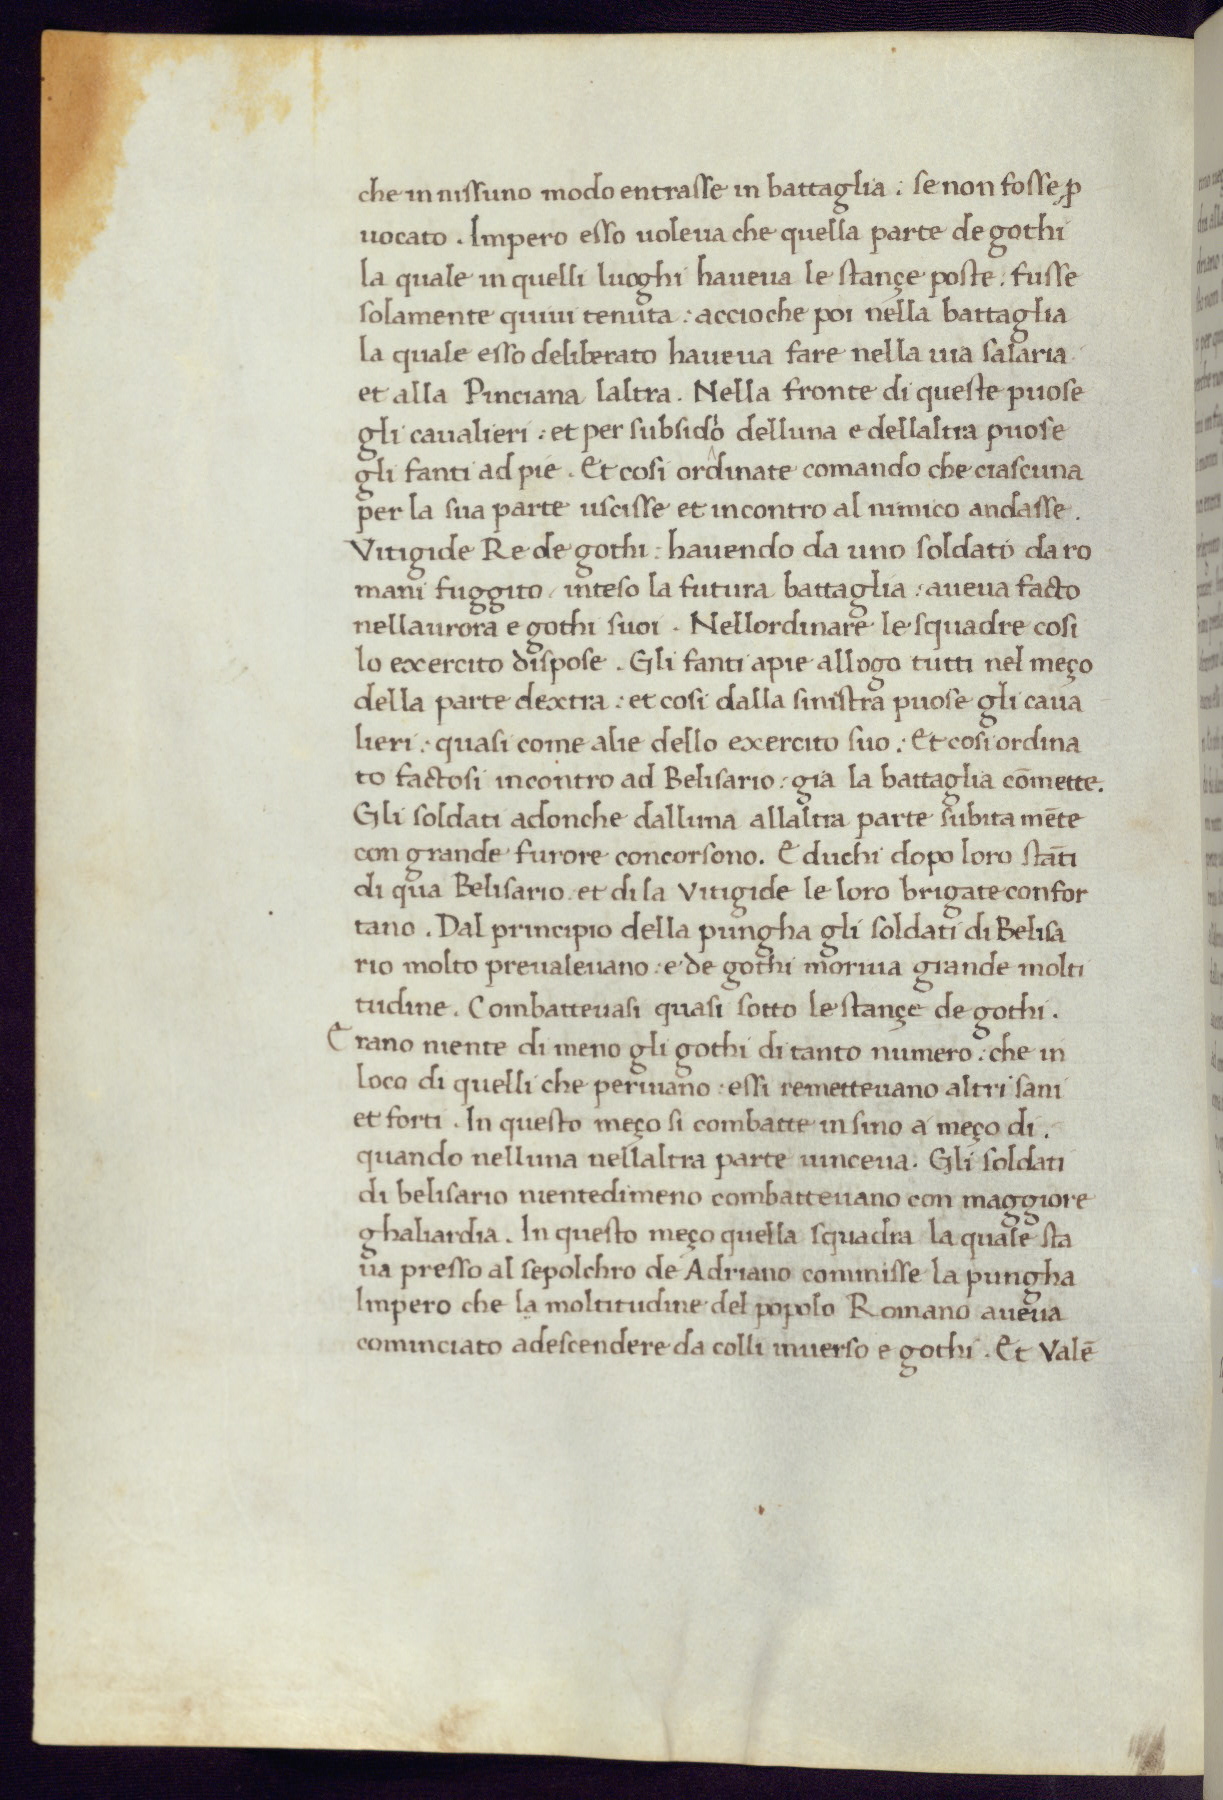 che in nissuno modo entrasse in battaglia : se non fosse ꝓ
uocato . Impero esso uoleua che quella parte de gothi
la quale in quelli luoghi haueua le stançe poste . fusse
solamente quiui tenuta : accioche poi nella battaglia
la quale esso deliberato haueua fare nella uia salaria
et alla Pinciana laltra . Nella fronte di queste puose
gli caualieri : et per subsidio delluna e dellaltra puose
gli fanti ad pie . Et cosi ordinate comando che ciascuna
per la sua parte uscisse et incontro al nimico andasse .
Vitigide Re de gothi : hauendo da uno soldato da ro
mani fuggito / inteso la futura battaglia : aueua facto
nellaurora e gothi suoi . Nellordinare le squadre cosi
lo exercito dispose . Gli fanti apie allogo tutti nel meço
della parte dextra : et cosi dalla sinistra puose gli caua
lieri : quasi come alie dello exercito suo : Et cosi ordina
to factosi incontro ad Belisario : già la battaglia cōmette .
Gli soldati adonche dalluna allaltra parte subita mēte
con grande furore concorsono . E duchi dopo loro stāti
di qua Belisario et di la Vitigide le loro brigate confor
tano . Dal principio della pungha gli soldati di Belisa
rio molto preualeuano : e de gothi moriua grande molti
tudine . Combatteuasi quasi sotto le stançe de gothi .
Erano niente di meno gli gothi di tanto numero : che in
loco di quelli che periuano : essi remetteuano altri sani
et forti . In questo meço si combatte in sino a meço di .
quando nelluna nellaltra parte uinceua . Gli soldati
di belisario nientedimeno combatteuano con maggiore
ghaliardia . In questo meço quella squadra la quale sta
ua presso al sepolchro de Adriano commisse la pungha
Impero che la moltitudine del popolo Romano aueua
cominciato adescendere da colli inuerso e gothi . Et Valē